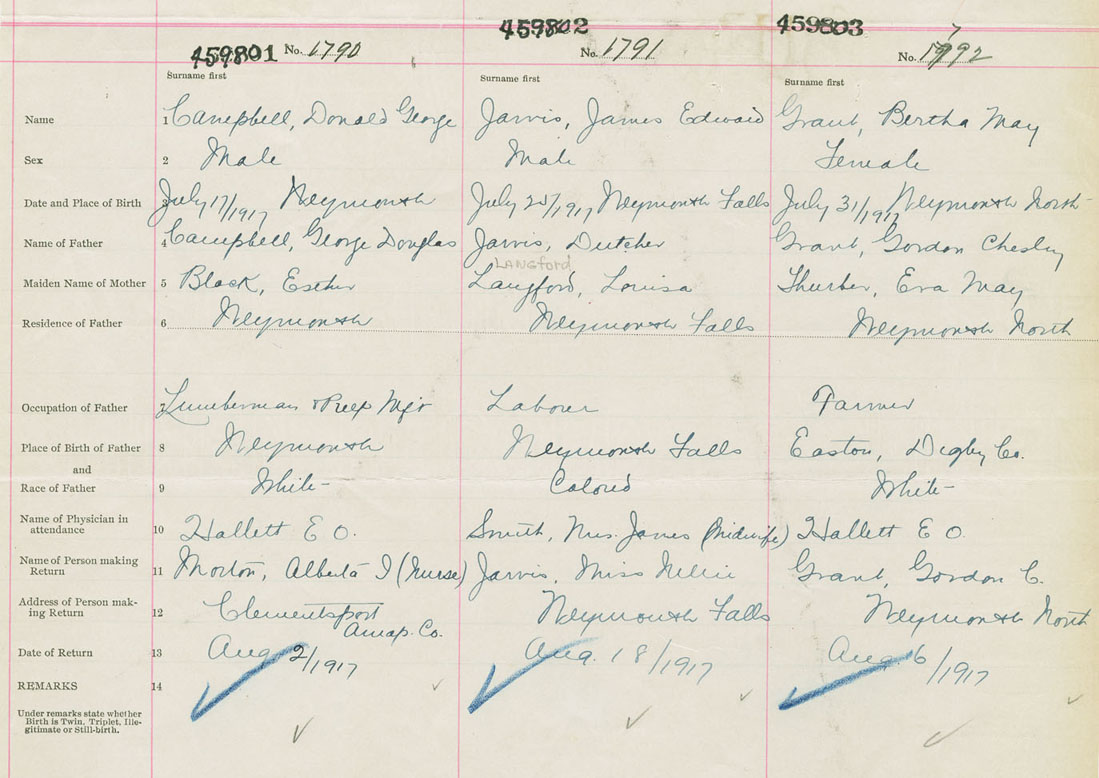 459801 No. 1790 459802 No. 1791 459803 No. 1792
Surname first Surname first Surname first
Name 1 Campbell, Donald George Jarvis, James Edward Grant, Bertha May
Sex 2 Male Male Female
Date and Place of Birth 3 July 17/1917 Weymouth July 25/1917 Weymouth Falls July 31/1917 Weymouth North
Name of Father 4 Campbell, George Douglas Jarvis, Dutcher Grant, Gordon Chesley
LANGford
Maiden Name of Mother 5 Black, Esther Langford, Louisa Thurber, Eva May
Residence of Father 6 Weymouth Weymouth Falls Weymouth North
Occupation of Father 7 Lumberman & Mfr Labourer Farmer
Place of Birth of Father 8 Weymouth Weymouth Falls Easton, Digby Co.
and
Race of Father 9 White Colored White
Name of Physician in 10 Hallett E O. Smith, Mrs. James (Midwife) Hallett E O.
attendance
Name of Person making 11 Morton, Alberta I (Nurse) Jarvis, Miss Nellie Grant, Gordon C.
Return
Address of Person mak- 12 Clementsport Weymouth Falls Weymouth North
ing Return Annap. Co.
Date of Return 13 Aug 2/1917 Aug. 18/1917 Aug 6/1917
REMARKS 14
Under remarks state whether
Birth is Twin, Triplet, Ille-
gitimate or Still-birth.